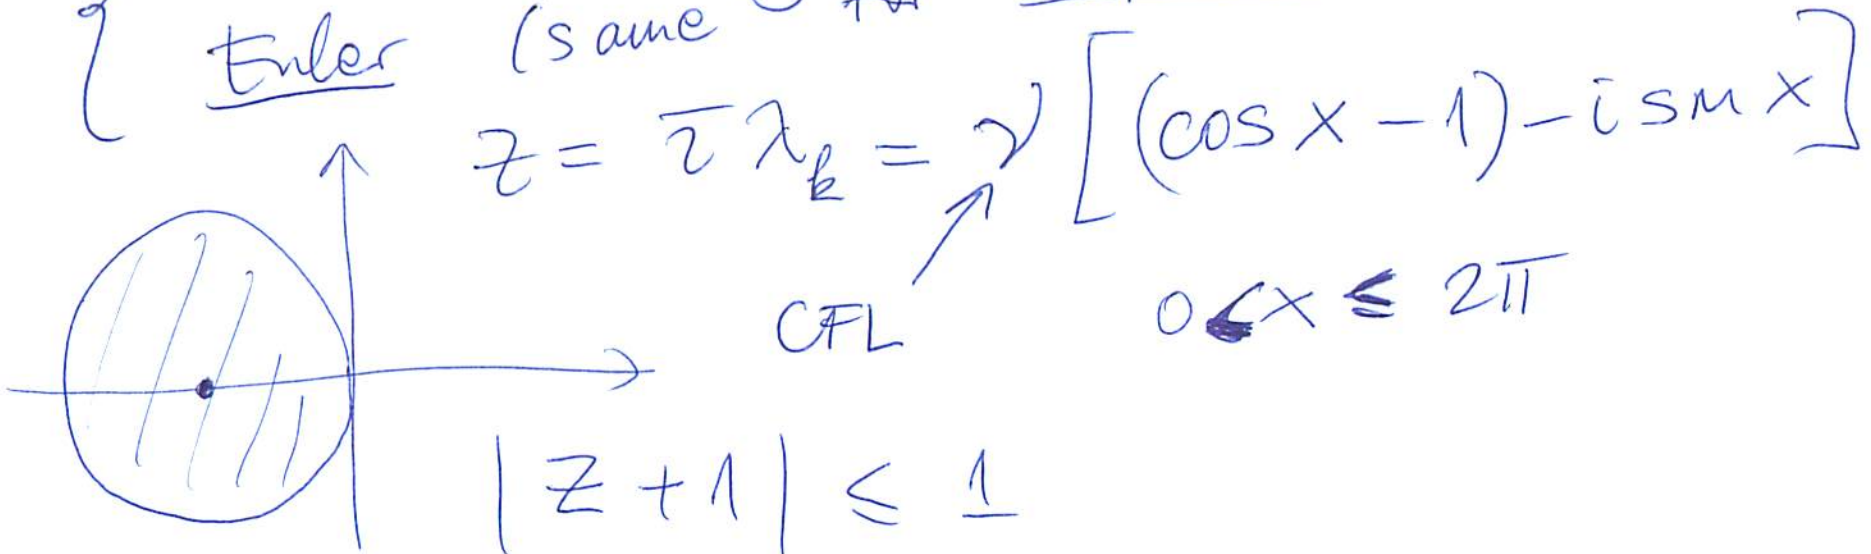 Euler (same
z = τ λ_k = ν [(cos x - 1) - i sin x]
CFL 0 < x ≤ 2π
|z + 1| ≤ 1